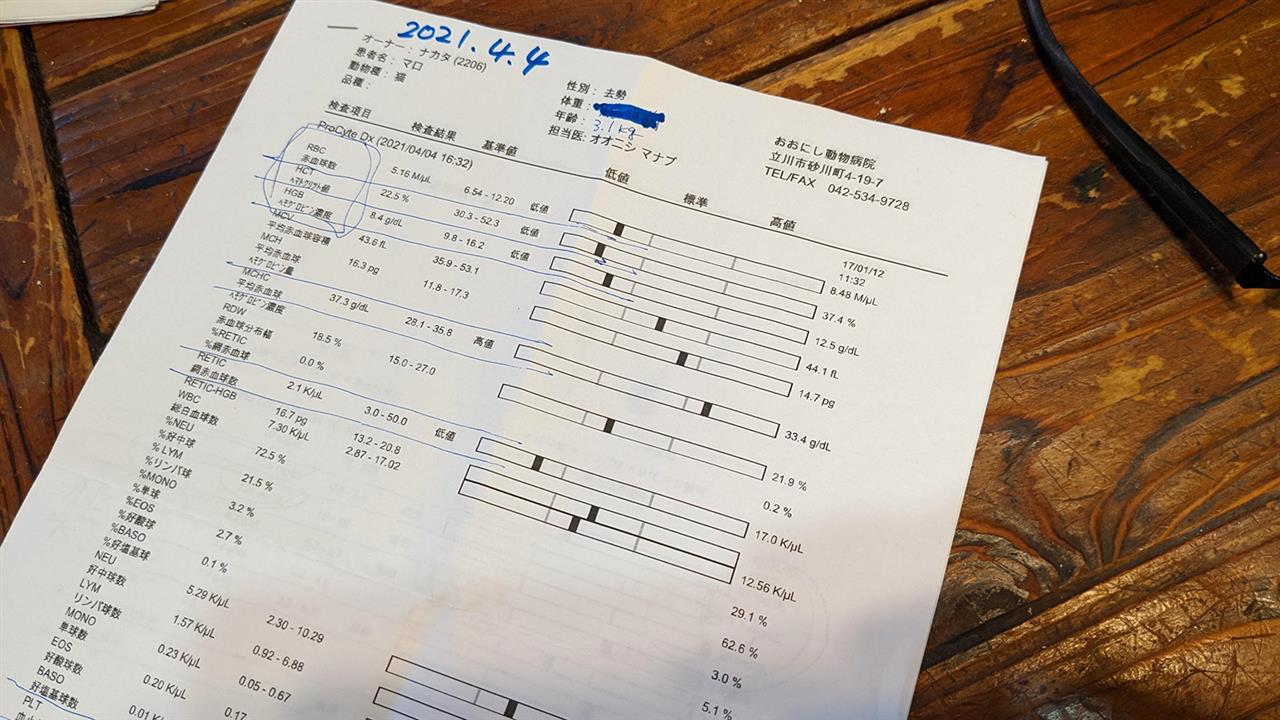 2021.4.4
オーナー: ナカタ (2206)
患者名: マロ
動物種: 猫
品種:
性別: 去勢
体重:
年齢: 3.1kg
担当医: オオニシ マナブ
おおにし動物病院
立川市砂川町4-19-7
TEL/FAX 042-534-9728
検査項目 検査結果 基準値 低値 標準 高値
ProCyte Dx (2021/04/04 16:32) 17/01/12
11:32
RBC 5.16 M/µL 6.54 - 12.20 低値 8.48 M/µL
赤血球数
HCT 22.5 % 30.3 - 52.3 低値 37.4 %
ヘマトクリット値
HGB 8.4 g/dL 9.8 - 16.2 低値 12.5 g/dL
ヘモグロビン濃度
MCV 43.6 fL 35.9 - 53.1 44.1 fL
平均赤血球容積
MCH 16.3 pg 11.8 - 17.3 14.7 pg
平均赤血球
ヘモグロビン量
MCHC 37.3 g/dL 28.1 - 35.8 高値 33.4 g/dL
平均赤血球
ヘモグロビン濃度
RDW 18.5 % 15.0 - 27.0 21.9 %
赤血球分布幅
%RETIC 0.0 % 0.2 %
%網赤血球
RETIC 2.1 K/µL 3.0 - 50.0 低値 17.0 K/µL
網赤血球数
RETIC-HGB 16.7 pg 13.2 - 20.8
WBC 7.30 K/µL 2.87 - 17.02 12.56 K/µL
総白血球数
%NEU 72.5 % 29.1 %
%好中球
%LYM 21.5 % 62.6 %
%リンパ球
%MONO 3.2 % 3.0 %
%単球
%EOS 2.7 % 5.1 %
%好酸球
%BASO 0.1 %
%好塩基球
NEU 5.29 K/µL 2.30 - 10.29
好中球数
LYM 1.57 K/µL 0.92 - 6.88
リンパ球数
MONO 0.23 K/µL 0.05 - 0.67
単球数
EOS 0.20 K/µL 0.17
好酸球数
BASO 0.01
好塩基球数
PLT